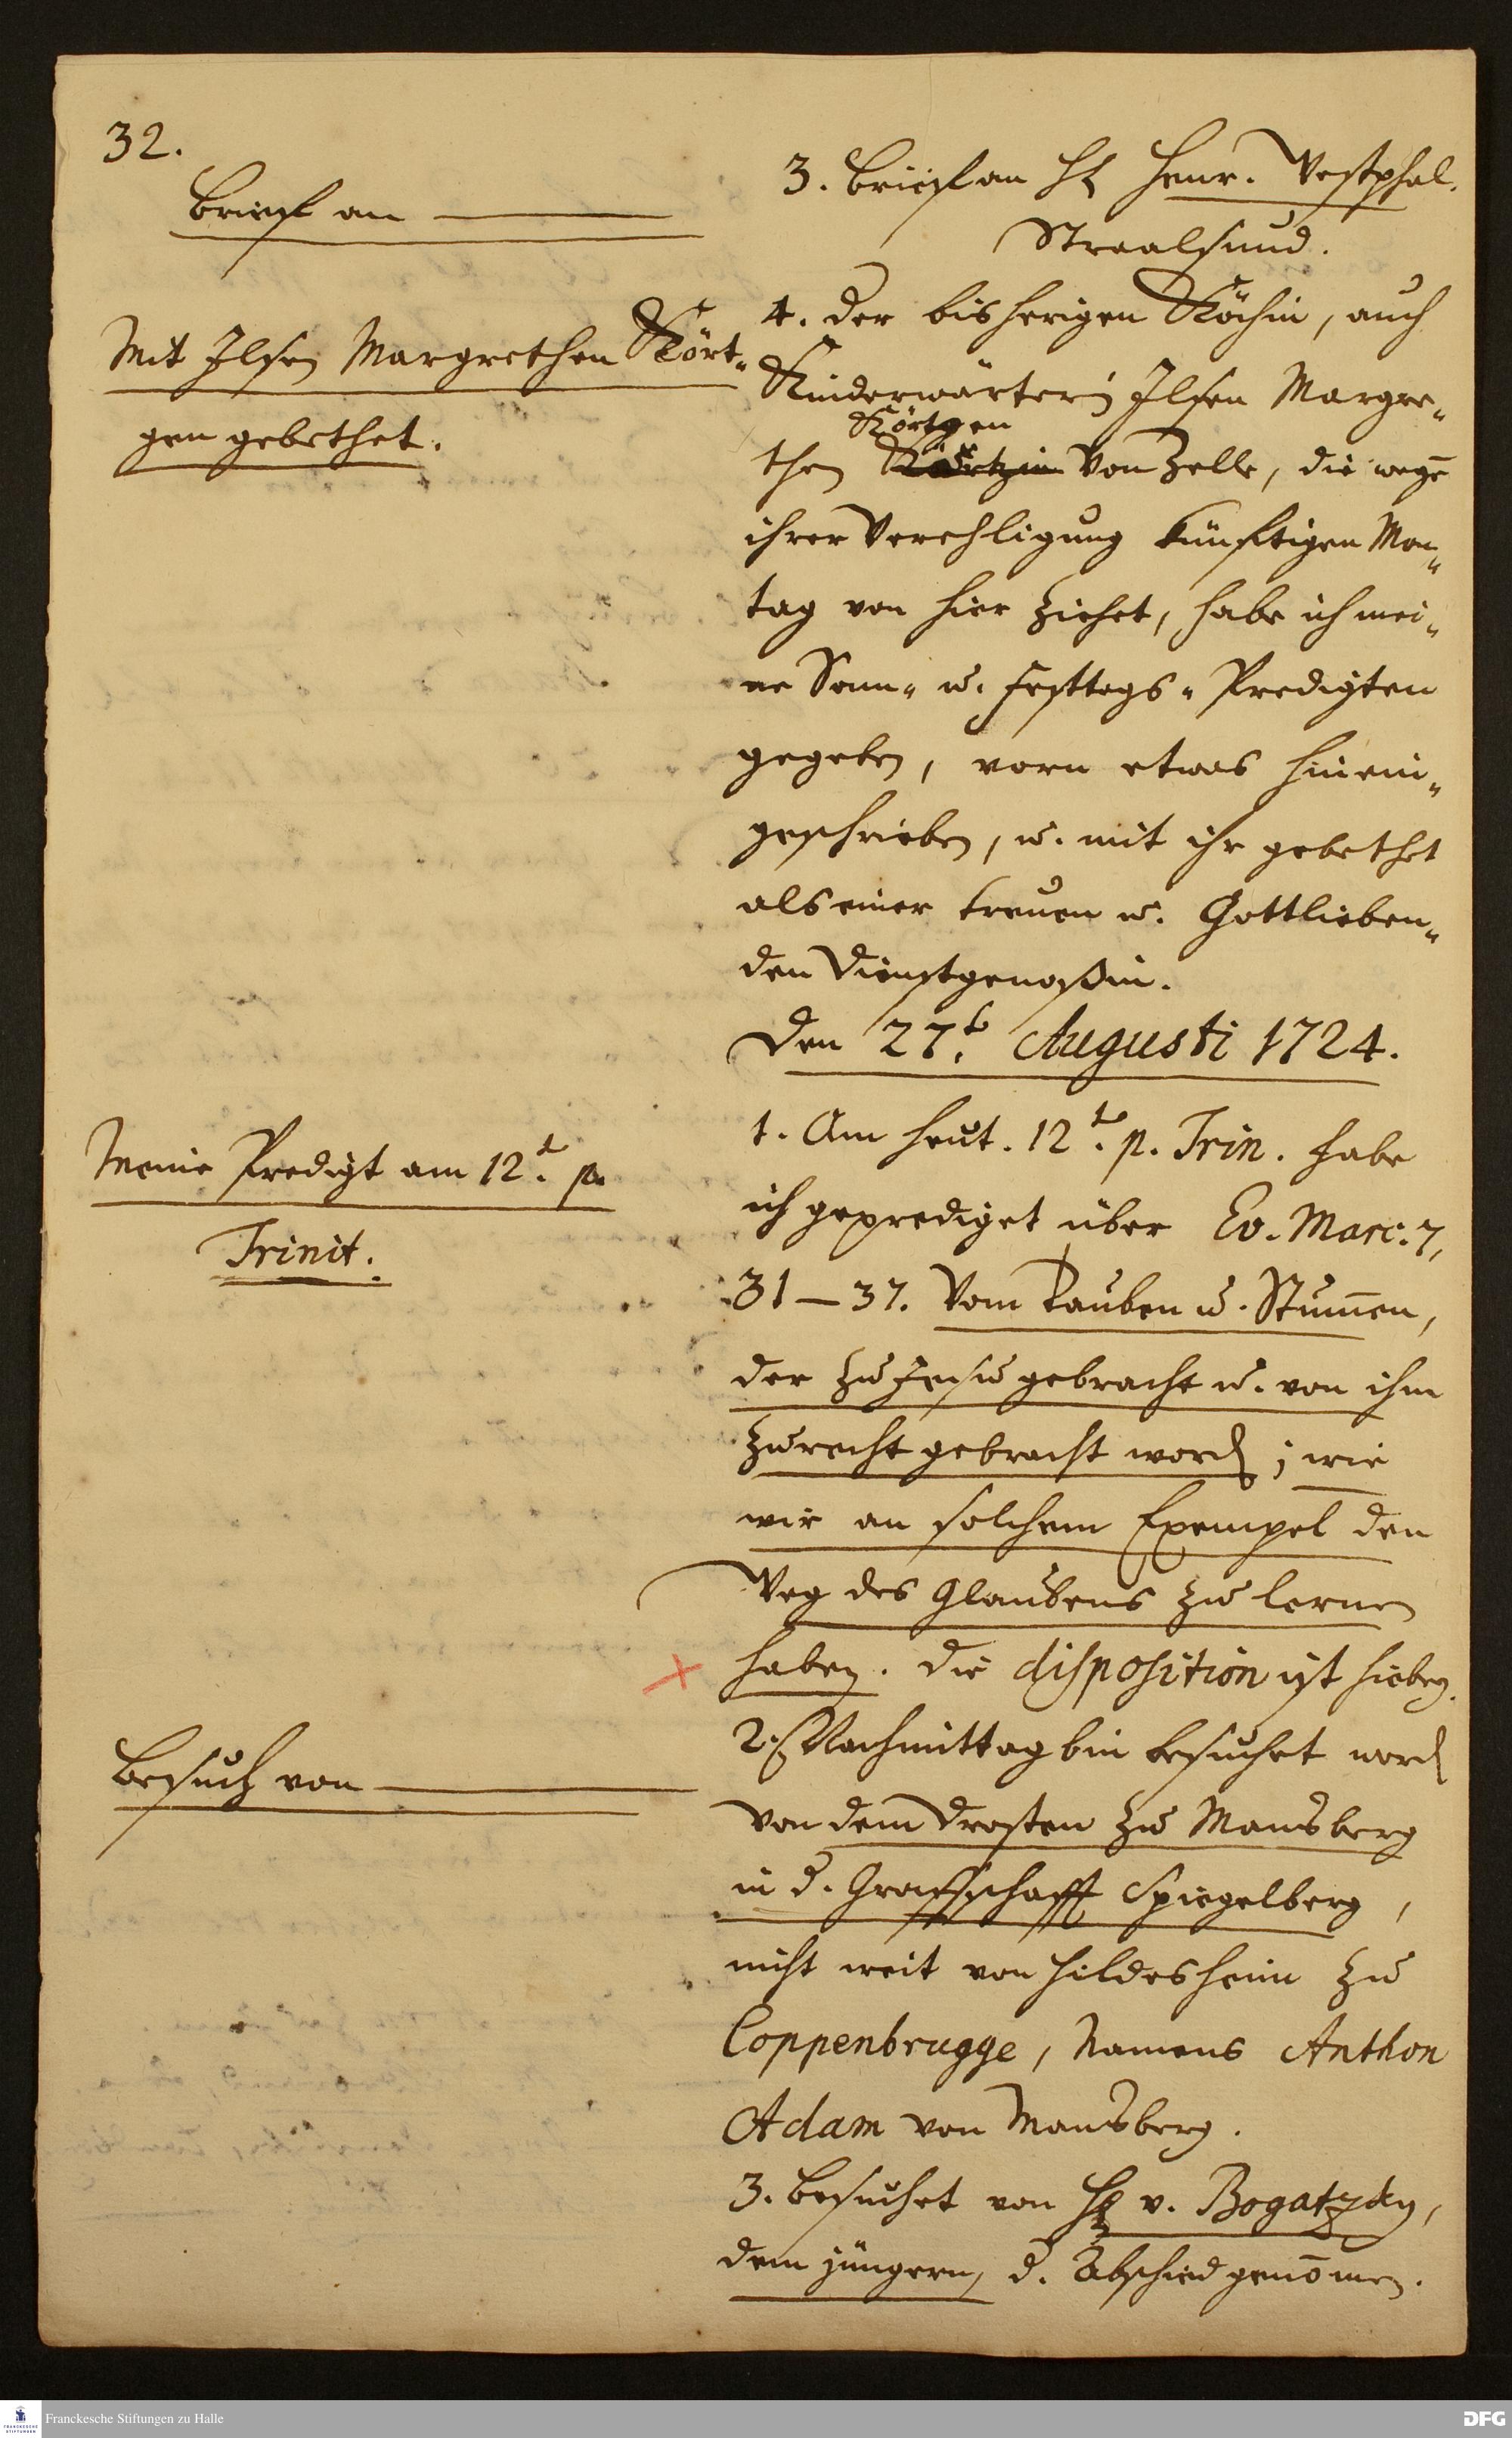 32.
Brief an
3. Brief an H. Henr. Westphal.
Straalsund.
Mit Ilsen Margrethen Kört-
gen gebethet.
4. der bisherigen Köchin, auch
Kinderwärterin Ilsen Margre-
Körtgen
then von Zelle, die wegē
ihrer Verehligung künftigen Mon-
tag von hier ziehet, habe ich mei-
ne Sonn- u. Festtags-Predigten
gegeben, vorn etwas hinein-
geschrieben, u. mit ihr gebethet
als einer treuen u. Gottlieben-
den Dienstgenoßin.
Den 27.t Augusti 1724.
Meine Predigt am 12.t p.
Trinit.
1. Am heut. 12.t p. Trin. habe
ich geprediget über Ev. Marc: 7,
31–37. Vom Tauben u. Stum̄en,
der zu Jesu gebracht u. von ihm
zurecht gebracht word; wie
wir an solchem Exempel den
Weg des Glaubens zu lernen
haben. Die disposition ist hiebey.
Besuch von
2. Nachmittag bin besuchet word
von dem Drosten zu Mansberg
in d. Graffschafft Spiegelberg,
nicht weit von Hildesheim zu
Coppenbrugge, Namens Anthon
Adam von Mansberg.
3. Besuchet von H. v. Bogatzky,
dem jüngern, d. Abschied genōmen.
FRANCKESCHE STIFTUNGEN
Franckesche Stiftungen zu Halle
DFG